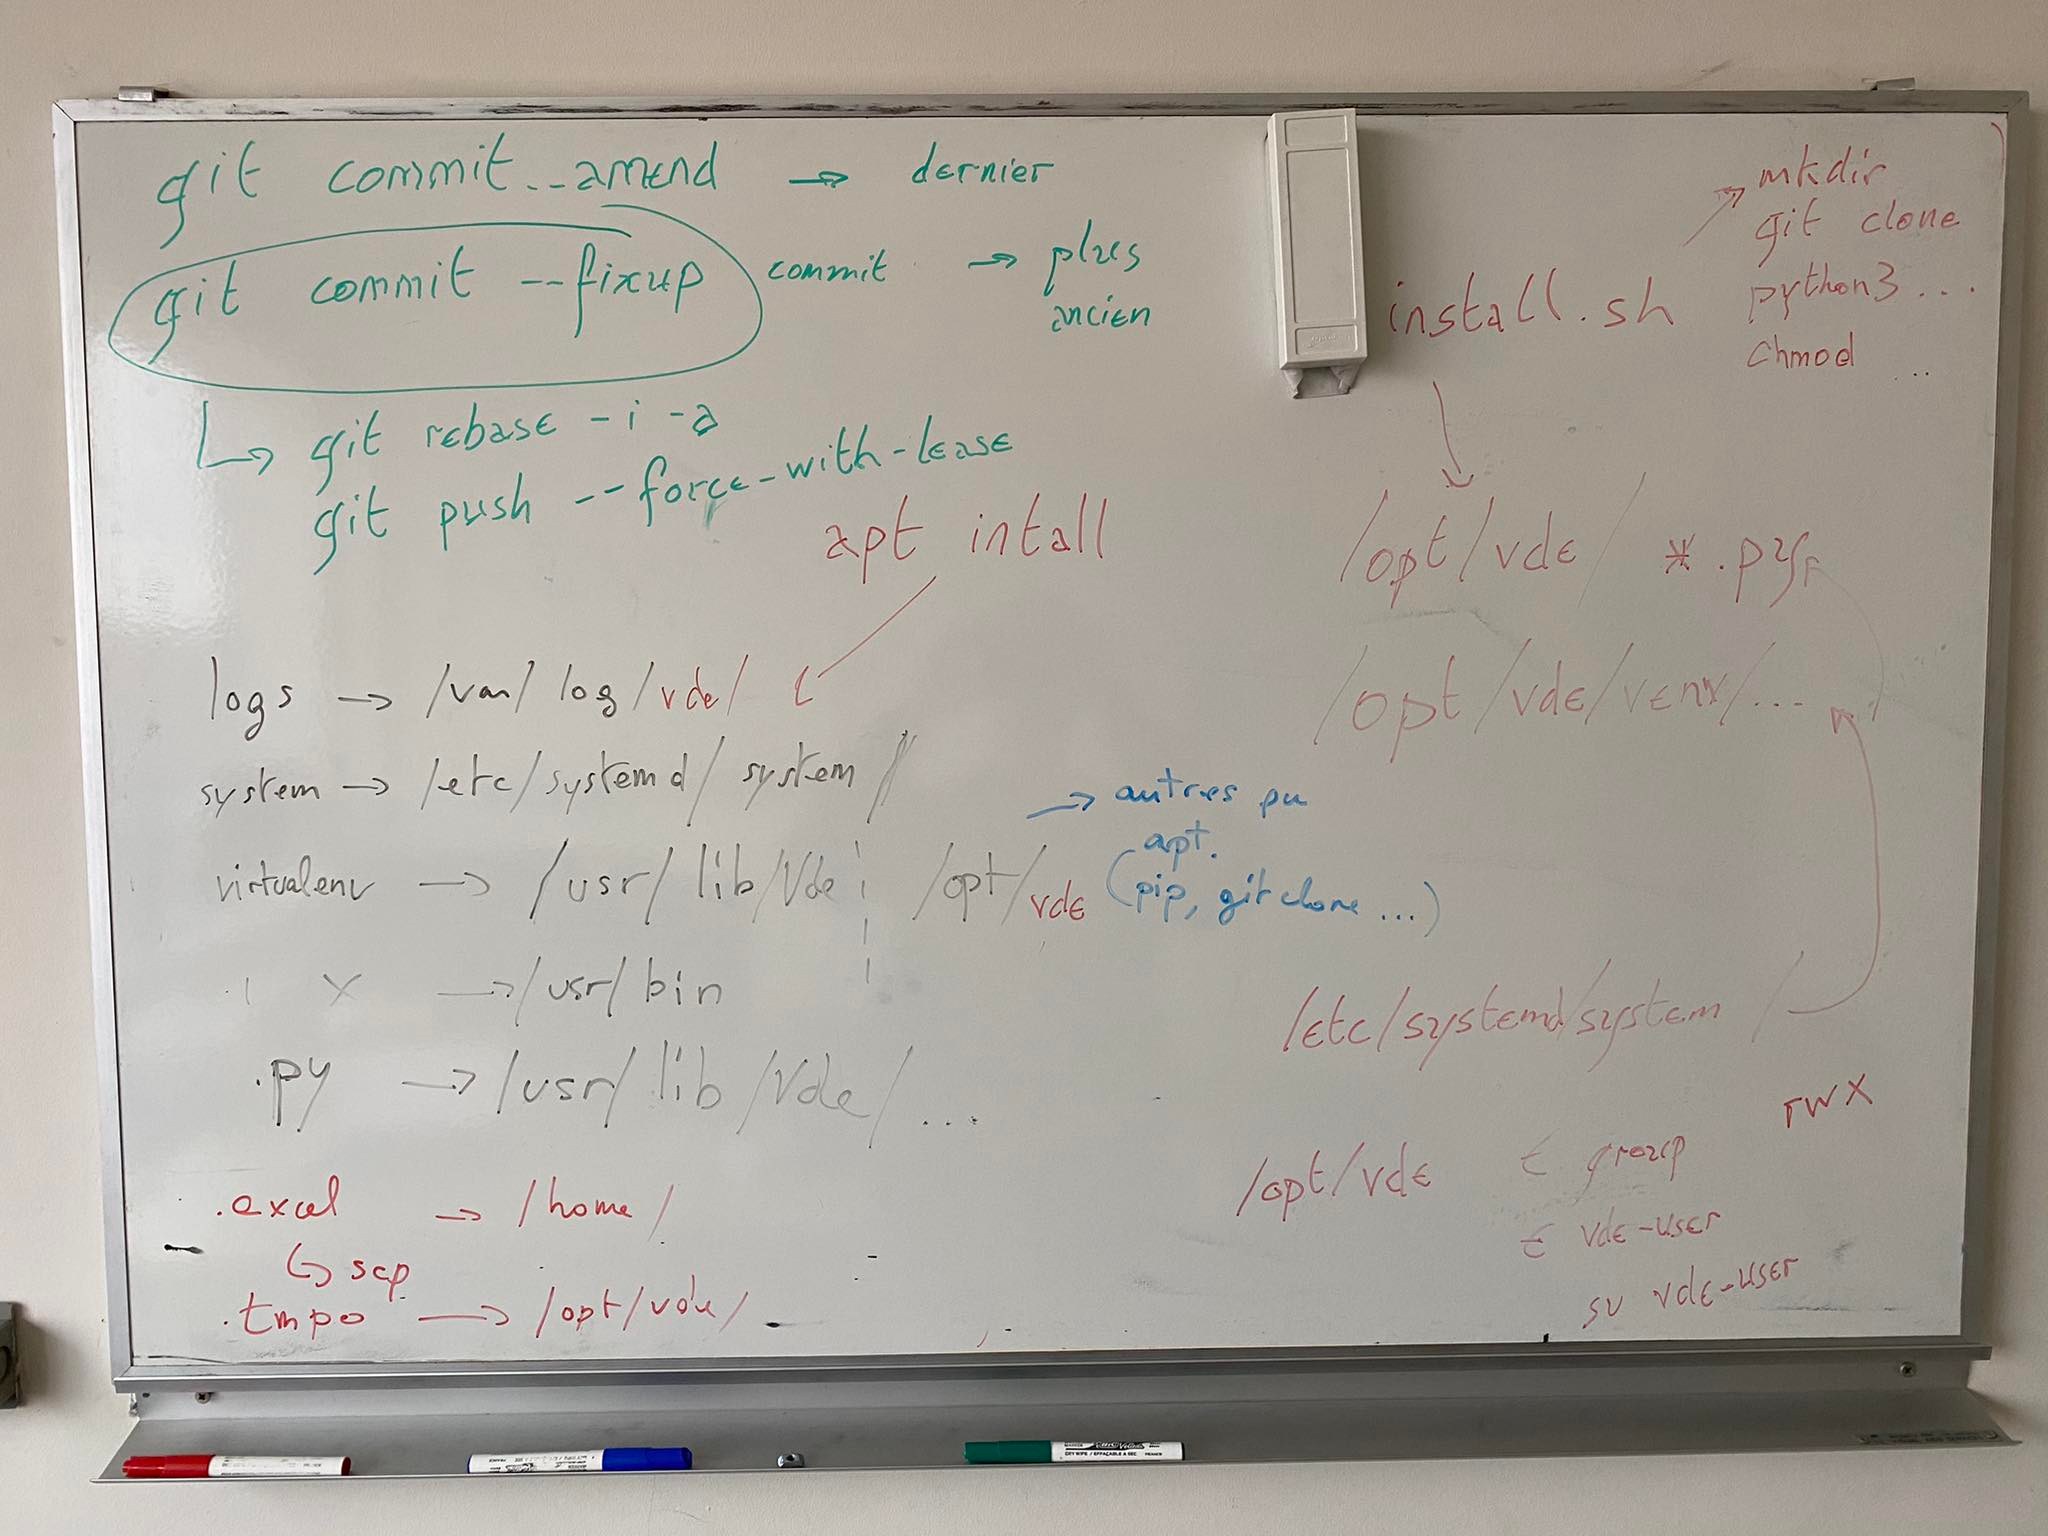 git commit --amend → dernier
git commit --fixup commit → plus
ancien
↳ git rebase -i -a
git push --force-with-lease
apt intall
logs → /var/log/vde/
system → /etc/systemd/system/
virtualenv → /usr/lib/vde /opt/vde
→ autres pu
apt.
(pip, git clone ...)
x → /usr/bin
.py → /usr/lib/vde/...
.excel → /home/
↳ scp
.tmpo → /opt/vde/
mkdir
git clone
python3 ...
chmod ...
install.sh
/opt/vde/ *.py
/opt/vde/venv/...
/etc/systemd/system/
rwx
/opt/vde ∈ group
∈ vde-user
su vde-user